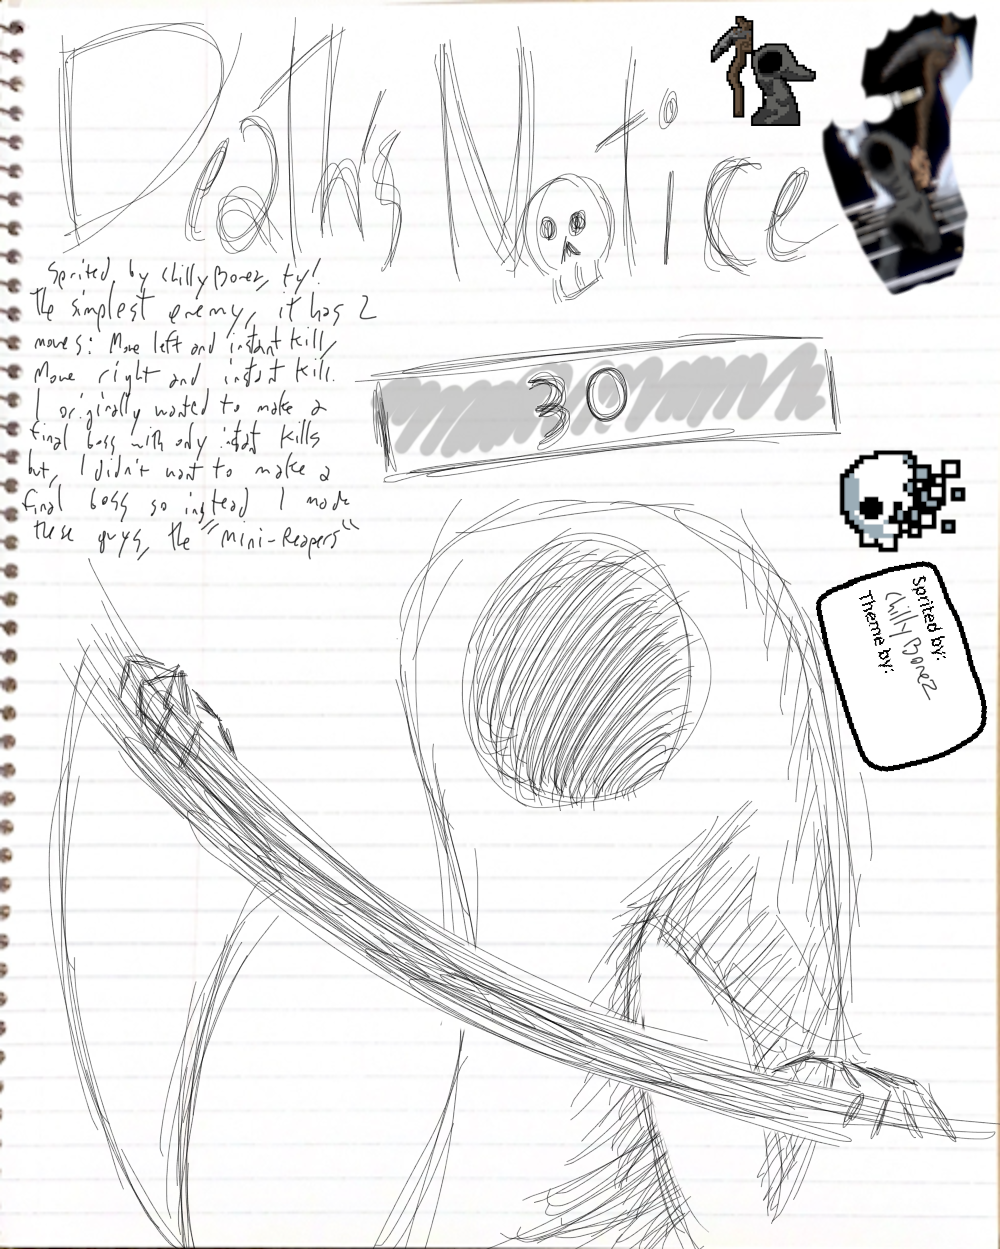 Death's Notice
Sprited by Chilly Bonez, ty!
The simplest enemy, it has 2
moves: Move left and instant kill,
Move right and instant kill.
I originally wanted to make a
final boss with only instant kills
but, I didn't want to make a
final boss so instead I made
these guys, the "Mini-Reapers"
30
Sprited by:
Chilly Bonez
Theme by: